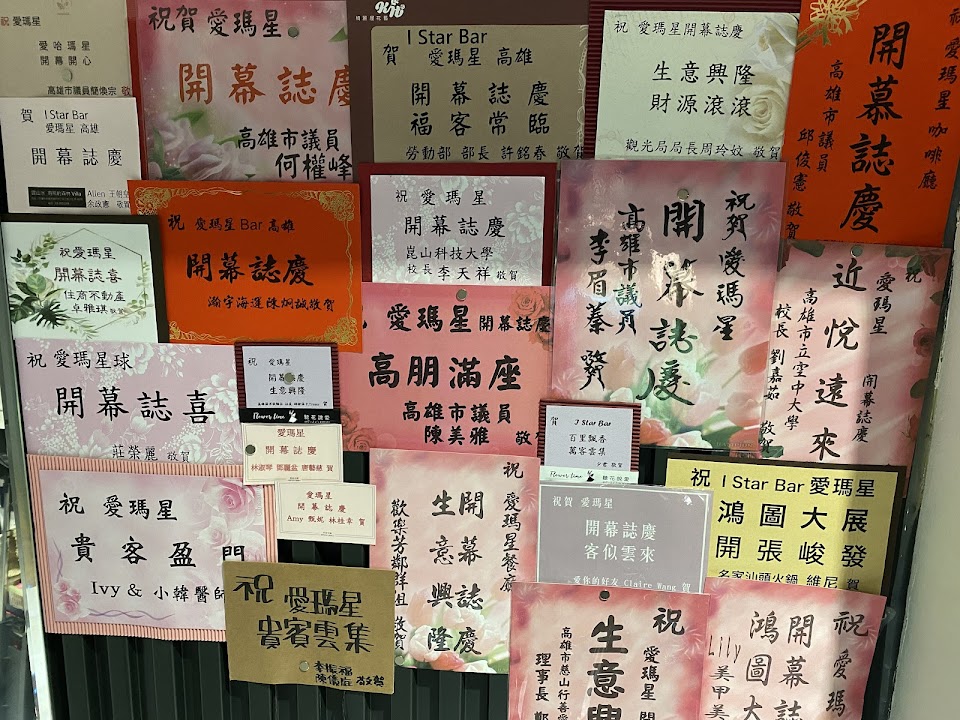 祝 愛瑪星
愛哈瑪星
開幕開心
高雄市議員簡煥宗 敬
祝賀愛瑪星
開幕誌慶
高雄市議員
何權峰
賀 I Star Bar
愛瑪星 高雄
開幕誌慶
福客常臨
勞動部 部長 許銘春 敬賀
祝 愛瑪星開幕誌慶
生意興隆
財源滾滾
觀光局局長周玲妏 敬賀
祝賀 愛瑪星咖啡廳
開慕誌慶
高雄市議員 邱俊憲 敬賀
賀 I Star Bar
愛瑪星 高雄
開幕誌慶
Allen 王
余政憲 敬賀
祝 愛瑪星Bar高雄
開幕誌慶
瀚宇海運陳炯誠敬賀
祝 愛瑪星
開幕誌慶
崑山科技大學
校長李天祥 敬賀
祝賀愛瑪星
開幕誌慶
高雄市議員
李眉蓁 敬賀
祝 愛瑪星 開幕誌慶
近悅遠來
高雄市立空中大學
校長 劉嘉茹 敬賀
祝愛瑪星
開幕誌喜
住商不動產
卓雅琪 敬賀
愛瑪星開幕誌慶
高朋滿座
高雄市議員
陳美雅 敬賀
祝 愛瑪星球
開幕誌喜
莊榮麗 敬賀
祝 愛瑪星
開幕興慶
生意興隆
Flower time
愛瑪星
開幕誌慶
林淑琴 鄭麗盆 唐藝慈 賀
賀 I Star Bar
百里飄香
萬客雲集
Flower time
祝 愛瑪星
貴客盈門
Ivy & 小韓醫師
愛瑪星
開幕誌慶
Amy 甄妮 林桂幸 賀
祝 愛瑪星餐廳
開幕誌慶
生意興隆
歡樂芳鄰祥祖 敬賀
祝賀 愛瑪星
開幕誌慶
客似雲來
愛你的好友 Claire Wang 賀
祝 I Star Bar愛瑪星
鴻圖大展
開張峻發
名家汕頭火鍋 維尼 賀
祝 愛瑪星
貴賓雲集
李振福
陳儷庭 敬賀
祝 愛瑪星 開
生意興
高雄市慈山行善愛
理事長 鄭
祝 愛瑪
開幕誌
鴻圖大
Lily 美甲美